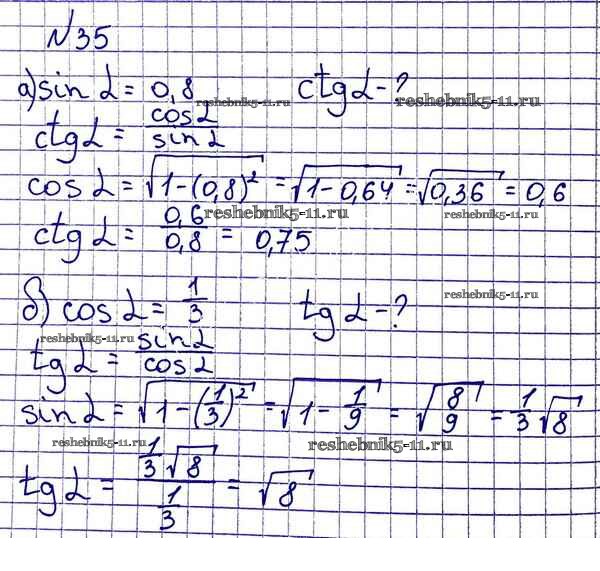 №35
а) sin α = 0,8     ctg α - ?
reshebnik5-11.ru     reshebnik5-11.ru
ctg α = cos α / sin α
cos α = √(1-(0,8)²) = √(1-0,64) = √(0,36) = 0,6
ctg α = 0,6 / 0,8 = 0,75
reshebnik5-11.ru     reshebnik5-11.ru
б) cos α = 1/3     tg α - ?
reshebnik5-11.ru
reshebnik5-11.ru
tg α = sin α / cos α
sin α = √(1-(1/3)²) = √(1 - 1/9) = √(8/9) = 1/3 √8
reshebnik5-11.ru     reshebnik5-11.ru
tg α = (1/3 √8) / (1/3) = √8